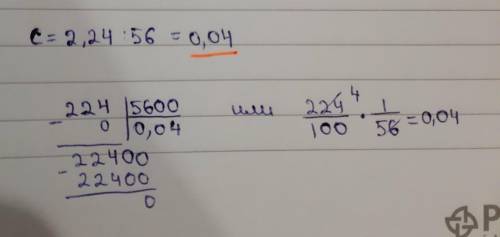 c = 2,24 : 56 = 0,04
- 224 | 5600
0 | 0,04
- 22400
22400
0
или 224 4 / 100 · 1 / 56 = 0,04
P